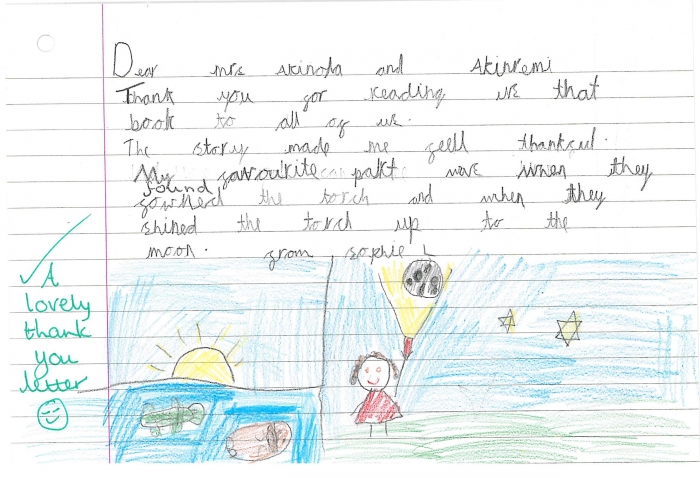 Dear mrs Akinola and Akinremi
Thank you for reading us that
book to all of us.
The story made me feell thankful.
My favourite part when they
found
the torch and when they
shined the torch up to the
moon. from sophie L
A
lovely
thank
you
letter